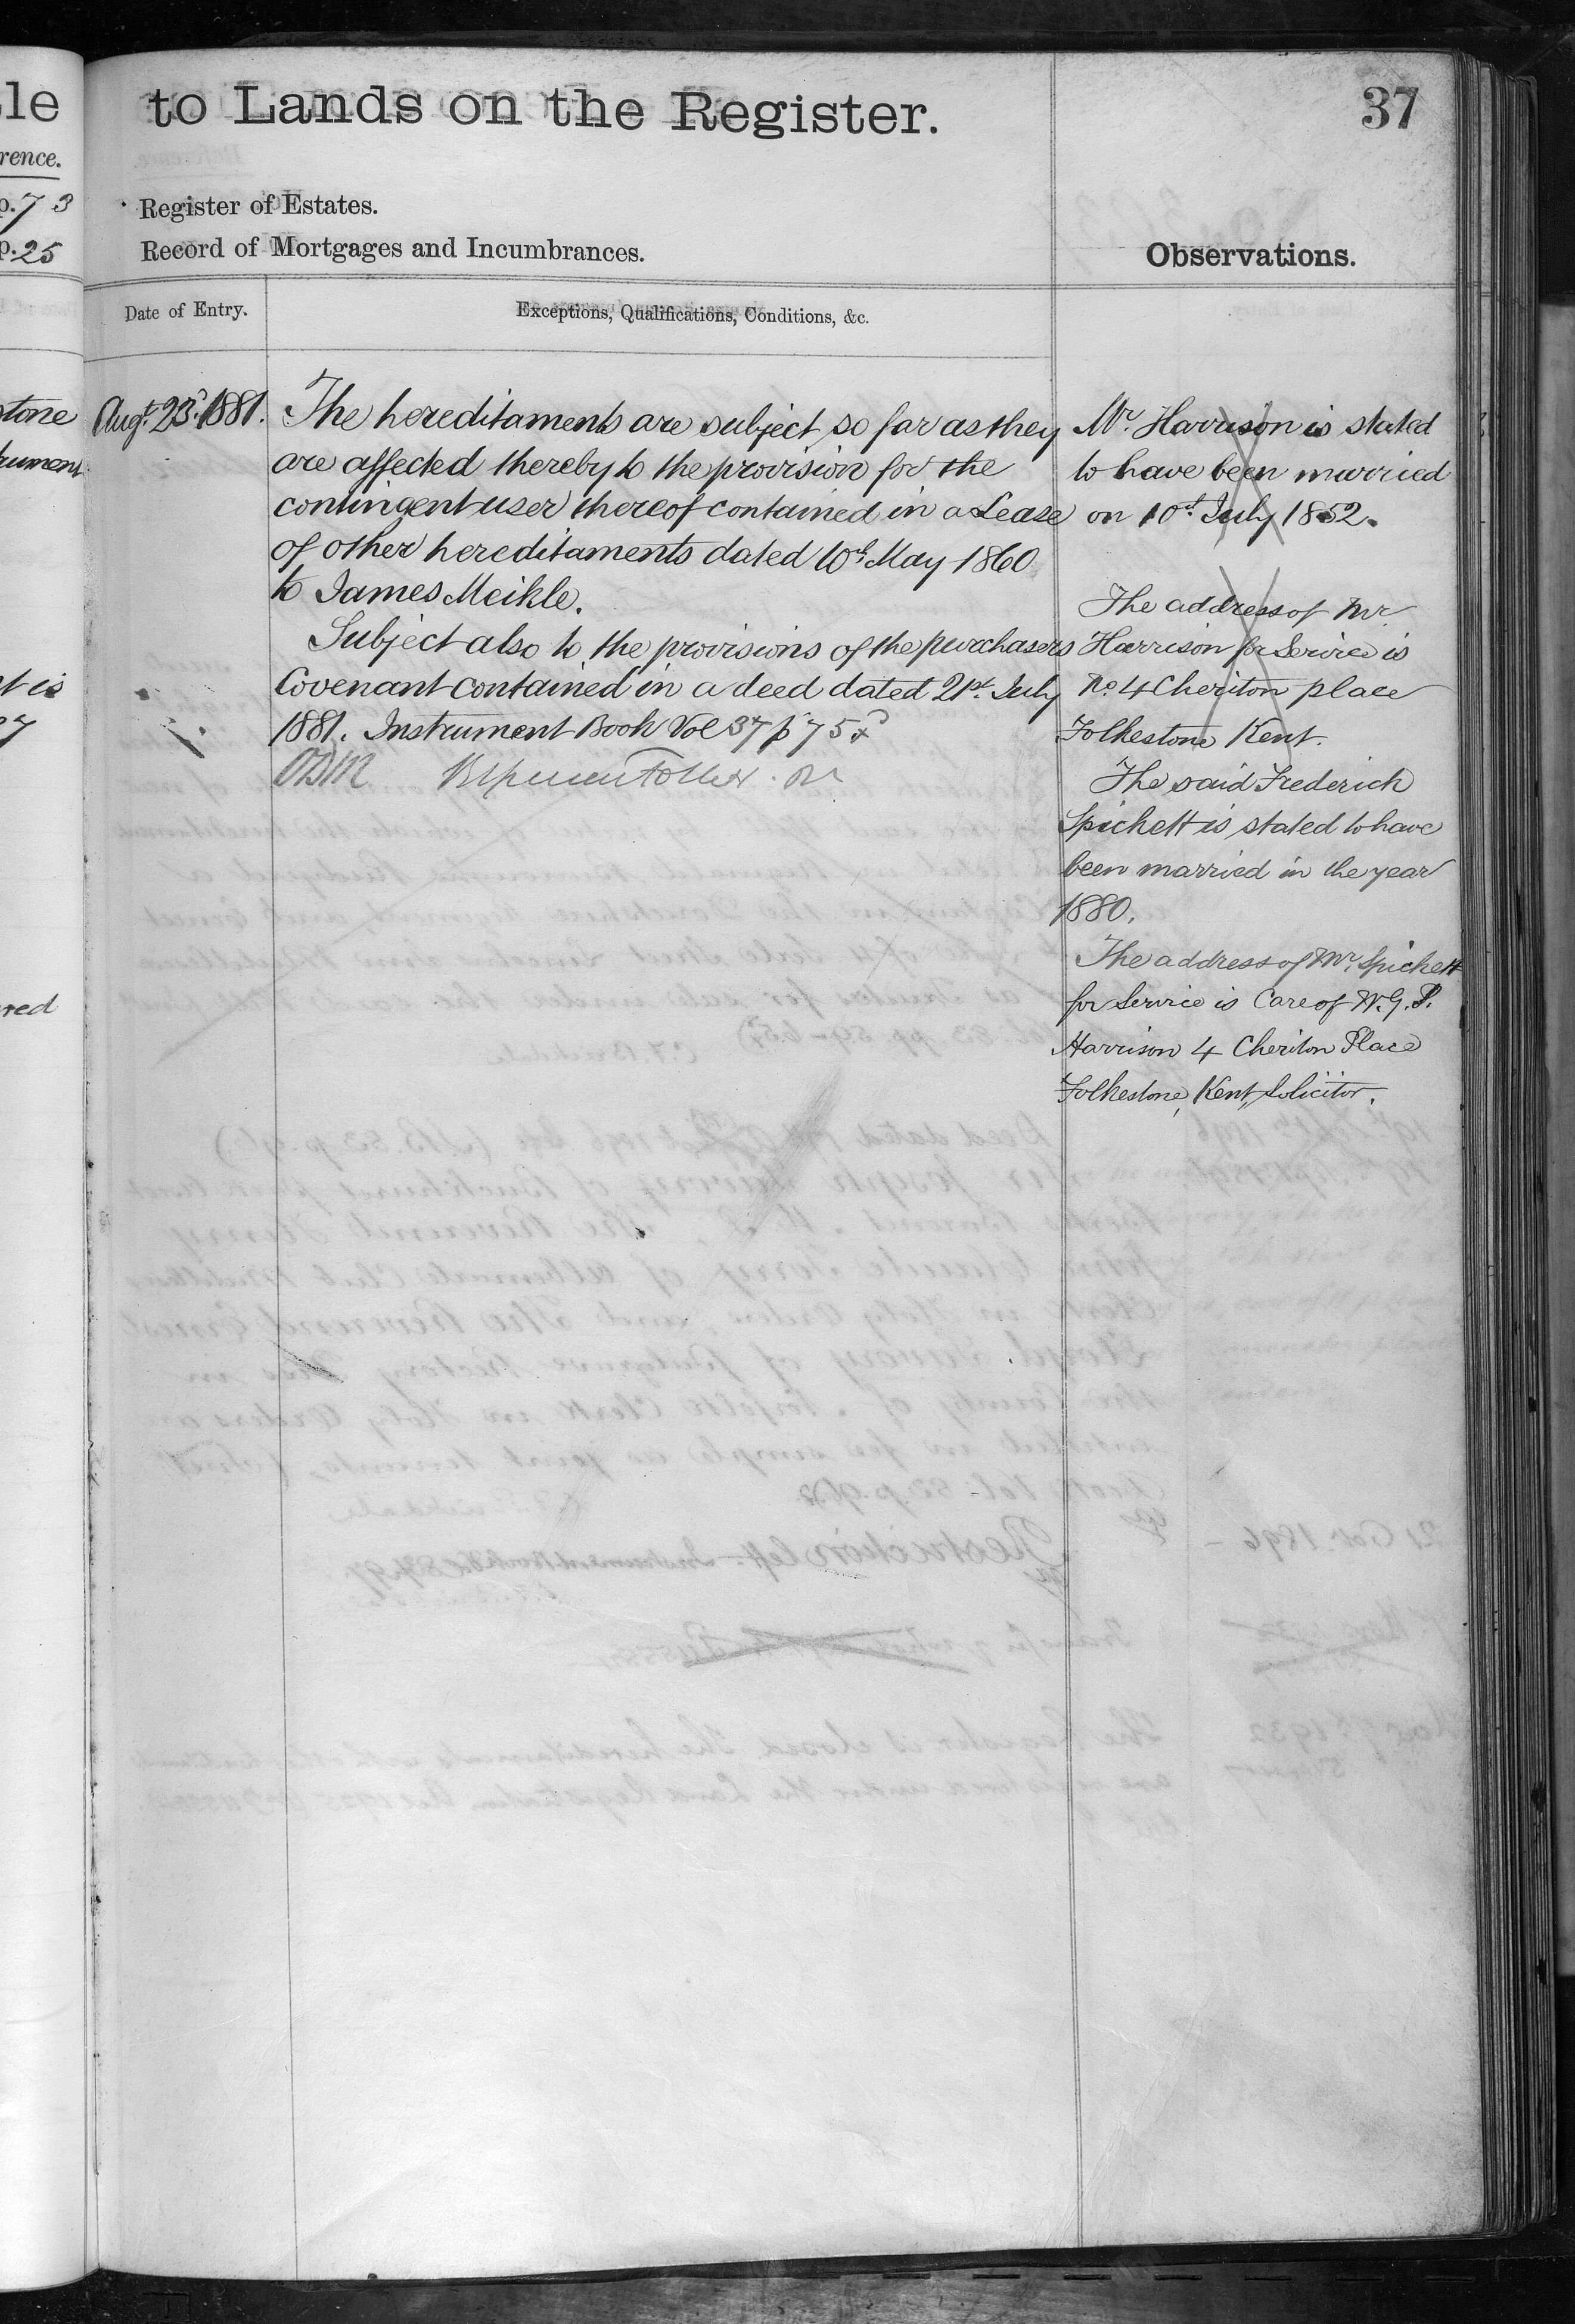 le
rence.
p. 73
p. 25
tone
trument
t is
red
to Lands on the Register.
37
Register of Estates.
Record of Mortgages and Incumbrances.
Observations.
Date of Entry.
Exceptions, Qualifications, Conditions, &c.
Augt. 23d. 1881.
The hereditaments are subject so far as they
are affected thereby to the provision for the
contingent user thereof contained in a Lease
of other hereditaments dated 10th May 1860
to James Meikle.
Subject also to the provisions of the purchasers
Covenant contained in a deed dated 21st. July
1881. Instrument Book Vol 37 p 75
Mr. Harrison is stated
to have been married
on 10th July 1852.
The address of Mr
Harrison for Service is
No. 4 Cheriton place
Folkestone Kent.
The said Frederick
Spickett is stated to have
been married in the year
1880.
The address of Mr. Spickett
for Service is Care of W. G. S.
Harrison 4 Cheriton Place
Folkestone, Kent, Solicitor.